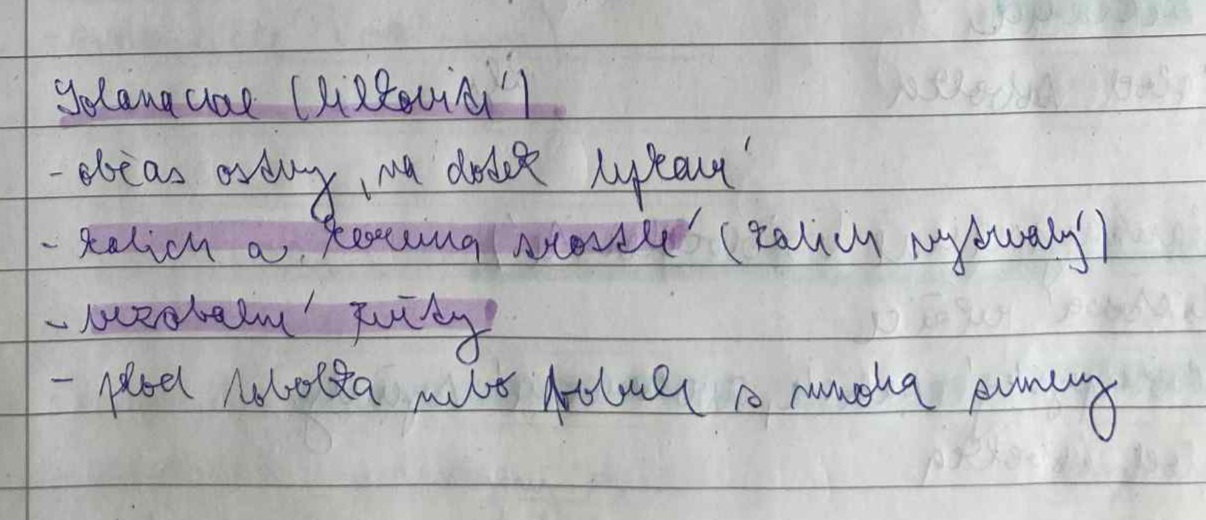 Solanaceae (lilkovité)
- občas ostny, na dotek lepkavé
- kalich a koruna srostlé (kalich vytrvalý)
- vezobalné květy
- plod tobolka nebo bobule s mnoha semeny